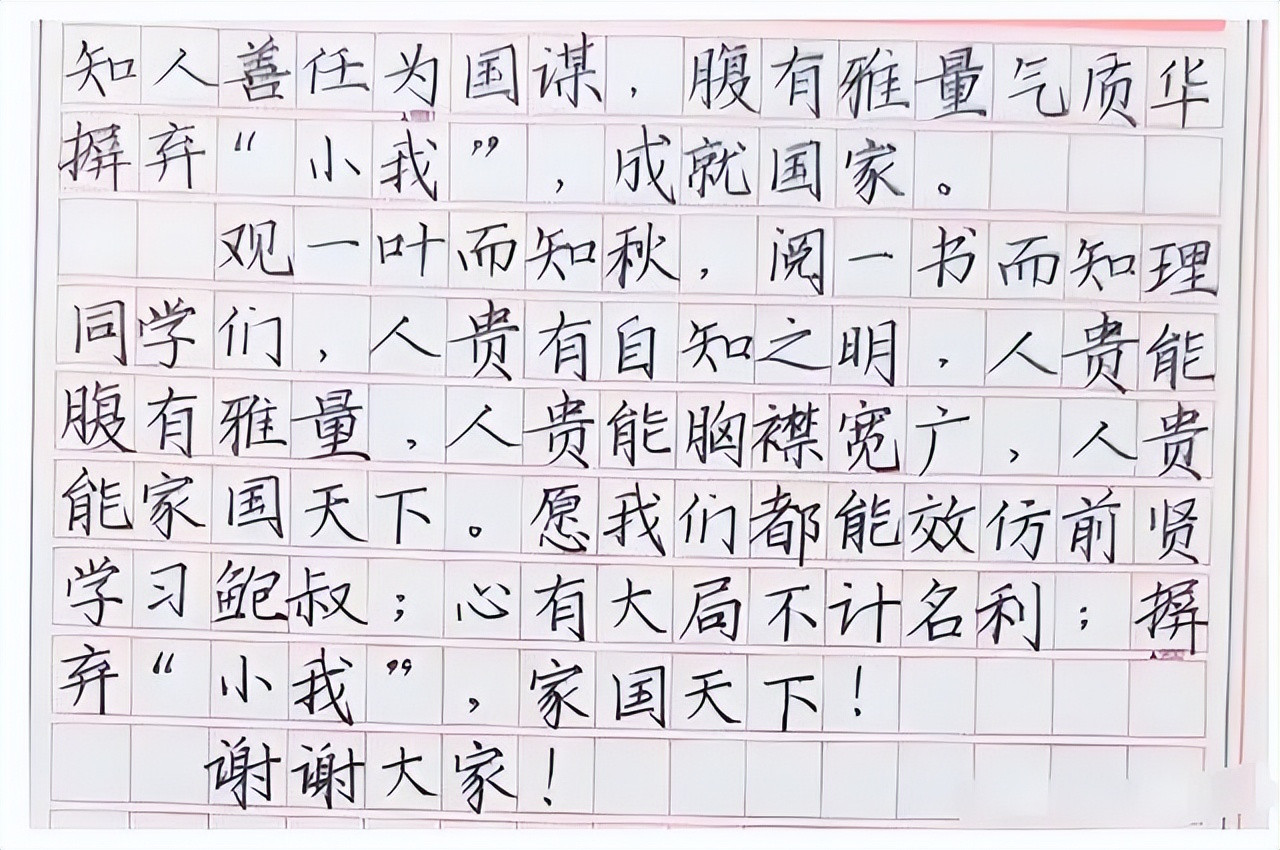 知人善任为国谋，腹有雅量气质华
摒弃“小我”，成就国家。
观一叶而知秋，阅一书而知理
同学们，人贵有自知之明，人贵能
腹有雅量，人贵能胸襟宽广，人贵
能家国天下。愿我们都能效仿前贤
学习鲍叔；心有大局不计名利；摒
弃“小我”，家国天下！
谢谢大家！